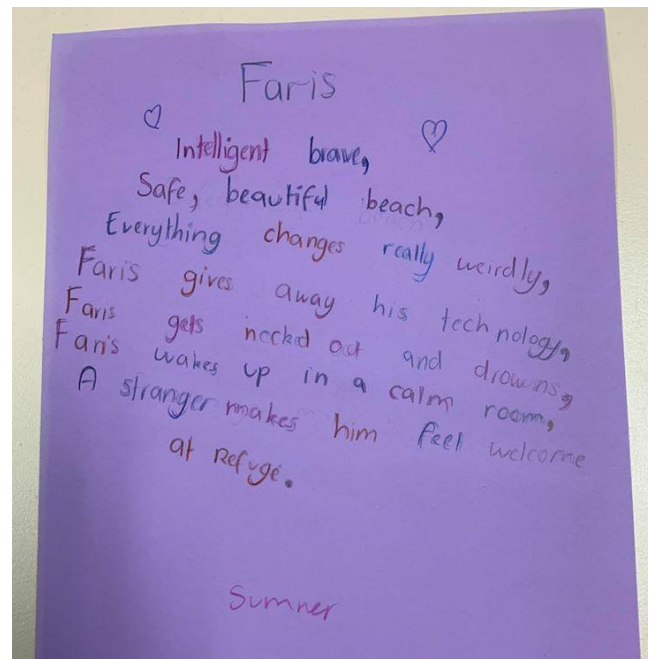 Faris
Intelligent brave,
Safe, beautiful beach,
Everything changes really weirdly,
Faris gives away his technology,
Faris gets nocked out and drowns,
Faris wakes up in a calm room,
A stranger makes him feel welcome
at Refuge.
Sumner